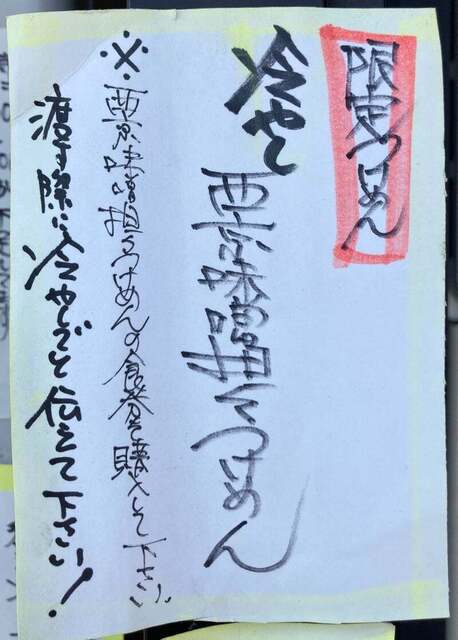 限定つけめん
冷やし
西京味噌担々つけめん
※西京味噌担々つけめんの食券を購入して下さい
渡す際に冷やしでと伝えて下さい!